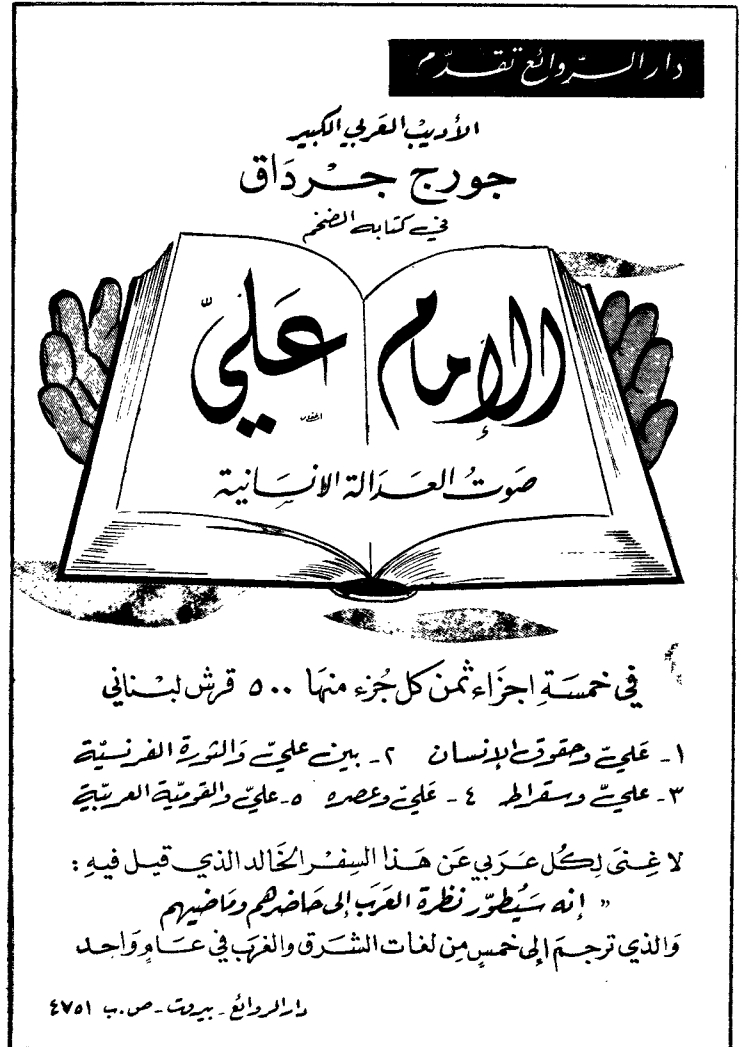 دار الروائع تقدّم
الأديب العربي الكبير
جورج جرداق
في كتابه الضخم
الإمام عليّ
صوتُ العدالة الانسانية
في خمسَةِ اجزاء ثمن كل جُزء منهَا ٥٠٠ قرش لبناني
١ـ عَليّ وحقوق الإنسان ٢ـ بين عليّ وَالثورة الفرنسيّة
٣ـ عليّ وسقراط ٤ـ عَليّ وعصره ٥ـ عليّ والقوميّة العربيّة
لا غِنىَ لِكُل عَرَبي عَن هَذا السِفْر الخَالد الذي قيل فيهِ :
" إنه سَيُطوّر نظرة العَرَب إلى حَاضرهم ومَاضيهم
وَالذي ترجمَ إلى خمسٍ مِن لغات الشرق والغرب في عَامٍ وَاحد
دار الروائع ـ بيروت ـ ص.ب ٤٧٥١